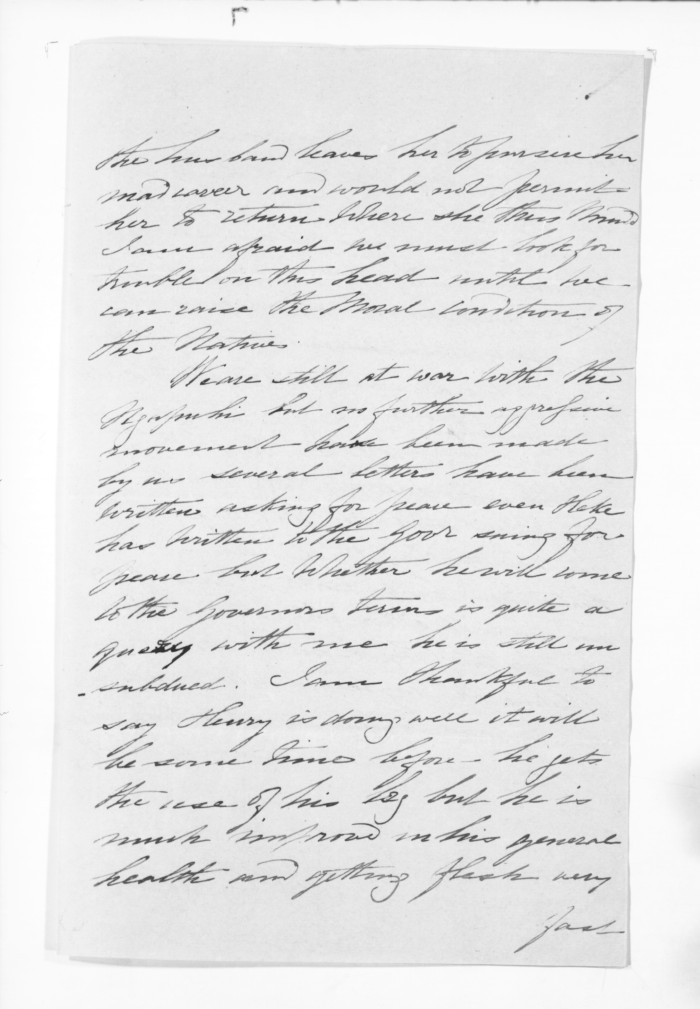 the husband leaves her to pursue her
mad career and would not permit
her to return where she thus
I am afraid we must look for
trouble on this head until we
can raise the Moral condition of
the Natives.
We are still at war with the
Ngapuhi but no further aggressive
movement have been made
by us several letters have been
written asking for peace even Heke
has written to the Govr suing for
peace but whether he will come
to the Governors terms is quite a
query with me he is still un
-subdued. I am thankful to
say Henry is doing well it will
be some time before he gets
the use of his leg but he is
much improvd in his general
health and getting flesh very
fast